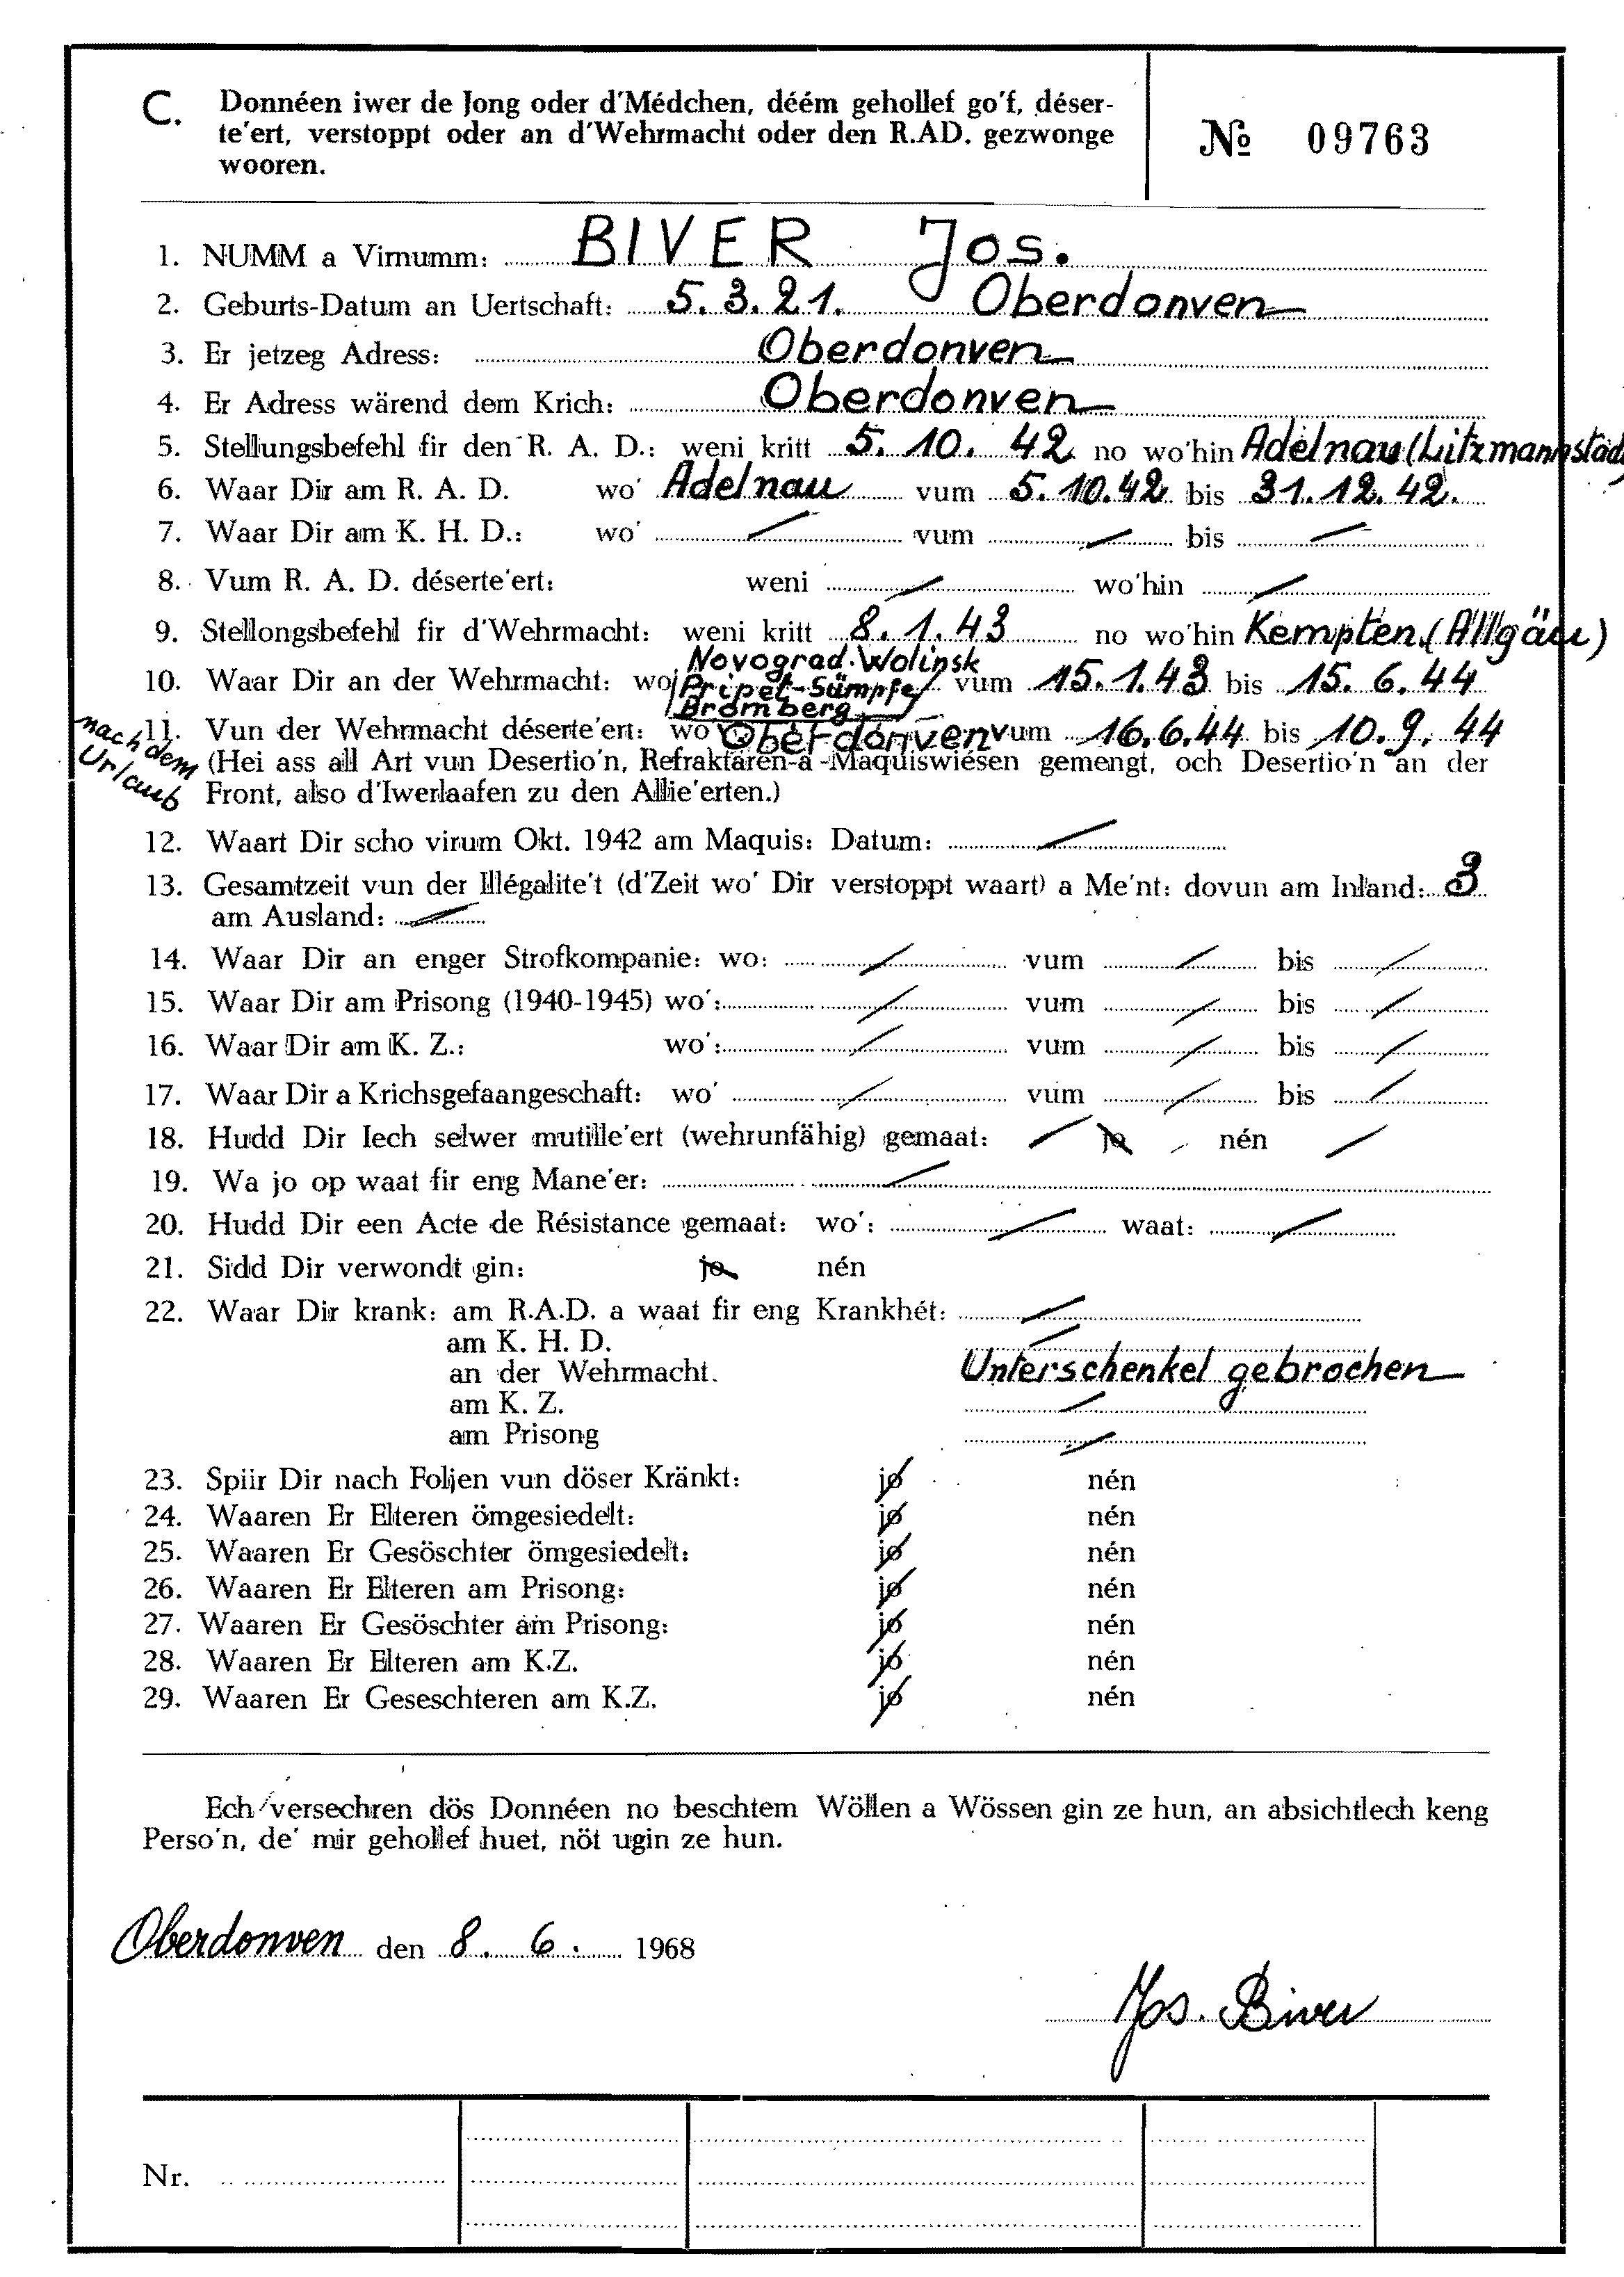 C. Donnéen iwer de Jong oder d'Médchen, déém gehollef go'f, déser-
te'ert, verstoppt oder an d'Wehrmacht oder den R.AD. gezwonge
wooren.
№ 09763
1. NUMM a Virnumm: BIVER Jos.
2. Geburts-Datum an Uertschaft: 5.3.21. Oberdonven
3. Er jetzeg Adress: Oberdonven
4. Er Adress wärend dem Krich: Oberdonven
5. Stellungsbefehl fir den R. A. D.: weni kritt 5. 10. 42 no wo'hin Adelnau (Litzmannstadt)
6. Waar Dir am R. A. D. wo' Adelnau vum 5.10.42 bis 31.12.42.
7. Waar Dir am K. H. D.: wo' / vum / bis /
8. Vum R. A. D. déserte'ert: weni / wo'hin /
9. Stellongsbefehl fir d'Wehrmacht: weni kritt 8. 1. 43 no wo'hin Kempten (Allgäu)
Novograd-Wolinsk
10. Waar Dir an der Wehrmacht: wo Pripet-Sümpfe vum 15.1.43 bis 15. 6. 44
Bromberg
nach dem Urlaub
11. Vun der Wehrmacht déserte'ert: wo Oberdonven vum 16.6.44 bis 10.9.44
(Hei ass all Art vun Desertio'n, Refraktären-a -Maquiswiésen gemengt, och Desertio'n an der
Front, also d'Iwerlaafen zu den Allie'erten.)
12. Waart Dir scho virum Okt. 1942 am Maquis: Datum: /
13. Gesamtzeit vun der Illégalite't (d'Zeit wo' Dir verstoppt waart) a Me'nt: dovun am Inland: 3
am Ausland: /
14. Waar Dir an enger Strofkompanie: wo: / vum / bis /
15. Waar Dir am Prisong (1940-1945) wo': / vum / bis /
16. Waar Dir am K. Z.: wo': / vum / bis /
17. Waar Dir a Krichsgefaangeschaft: wo' / vum / bis /
18. Hudd Dir Iech selwer mutille'ert (wehrunfähig) gemaat: / jo / nén /
19. Wa jo op waat fir eng Mane'er: /
20. Hudd Dir een Acte de Résistance gemaat: wo': / waat: /
21. Sidd Dir verwondt gin: jo nén
22. Waar Dir krank: am R.A.D. a waat fir eng Krankhét: /
am K. H. D. /
an der Wehrmacht. Unterschenkel gebrochen
am K. Z. /
am Prisong /
23. Spiir Dir nach Foljen vun döser Kränkt: jo nén
24. Waaren Er Elteren ömgesiedelt: jo nén
25. Waaren Er Gesöschter ömgesiedelt: jo nén
26. Waaren Er Elteren am Prisong: jo nén
27. Waaren Er Gesöschter am Prisong: jo nén
28. Waaren Er Elteren am K.Z. jo nén
29. Waaren Er Geseschteren am K.Z. jo nén
Ech versechren dös Donnéen no beschtem Wöllen a Wössen gin ze hun, an absichtlech keng
Perso'n, de' mir gehollef huet, nöt ugin ze hun.
Oberdonven den 8. 6. 1968
Jos. Biver
Nr.